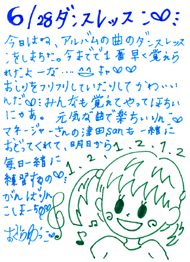 6/28ダンスレッスン♡
今日はね、アルバムの曲のダンスレッスン
をしました。今までで1番早く覚えら
れたよーな…
おしりをフリフリしていたりしてかわいい
んだ♡みんなも覚えてやってほちい
にゃあ。元気な曲で楽ちいりん♡
マネージャーさんの津田sanも一緒に
おどってくれて、明日から
毎日一緒に
練習物の♡
がんばりん
こしまーす
1.2.1.2.1.2